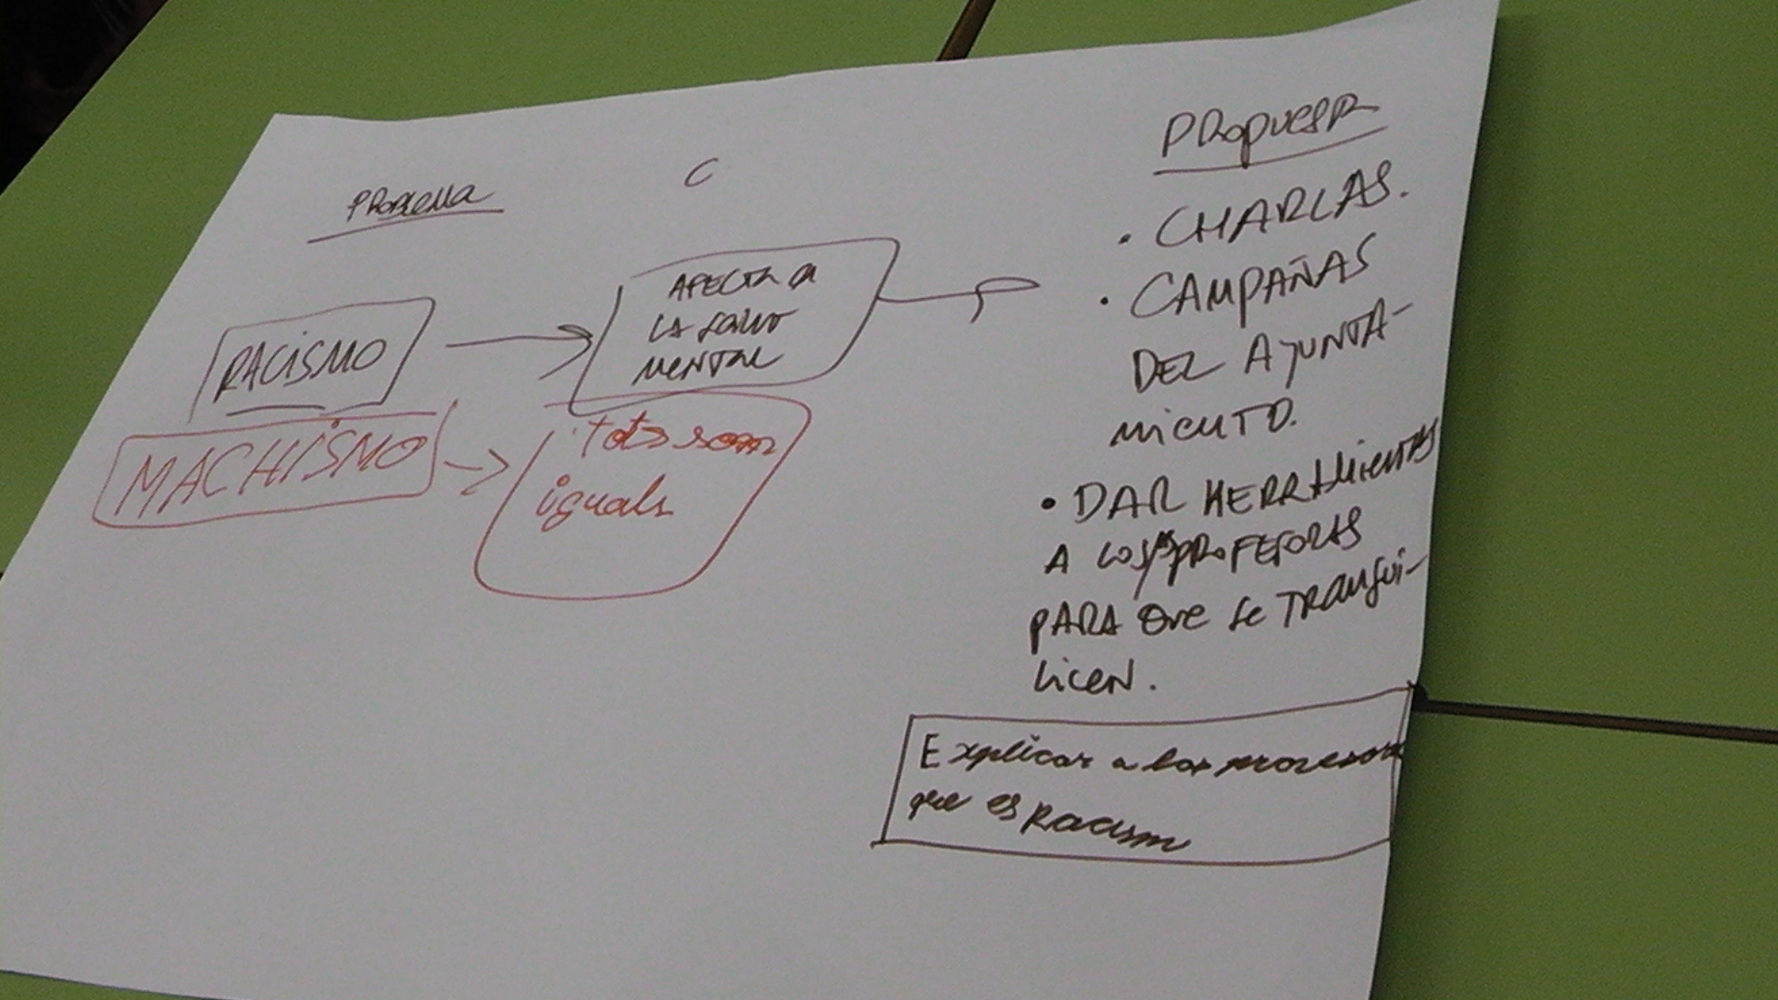 PROBLEMA
C
PROPUESTA
RACISMO
AFECTA A
LA SALUD
MENTAL
MACHISMO
Tots som
iguals
• CHARLAS.
• CAMPAÑAS
DEL AYUNTA-
MIENTO.
• DAR HERRAMIENTAS
A LOS/AS PROFESORAS
PARA QUE SE TRANQUI-
LICEN.
Explicar a los
que es Racism